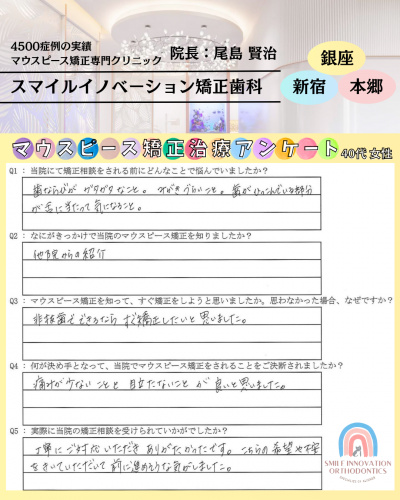 4500症例の実績
マウスピース矯正専門クリニック 院長：尾島 賢治
スマイルイノベーション矯正歯科
銀座
新宿
本郷
マウスピース矯正治療アンケート 40代 女性
Q1 : 当院にて矯正相談をされる前にどんなことで悩んでいましたか？
歯ならびが ガタガタなこと。 みがきづらいこと。 歯がひっこんでいる部分
が舌に当たって気になること。
Q2 : なにがきっかけで当院のマウスピース矯正を知りましたか？
他院からの紹介
Q3 : マウスピース矯正を知って、すぐ矯正をしようと思いましたか。思わなかった場合、なぜですか？
非抜歯でできるなら すぐ矯正したいと思いました。
Q4 : 何が決め手となって、当院でマウスピース矯正をされることをご決断されましたか？
痛みが少ないことと 目立たないこと が 良いと思いました。
Q5 : 実際に当院の矯正相談を受けられていかがでしたか？
丁寧にご対応いただき ありがたかったです。 こちらの希望や不安
をきいていただいて 前に進めそうな気がしました。
SMILE INNOVATION
ORTHODONTICS